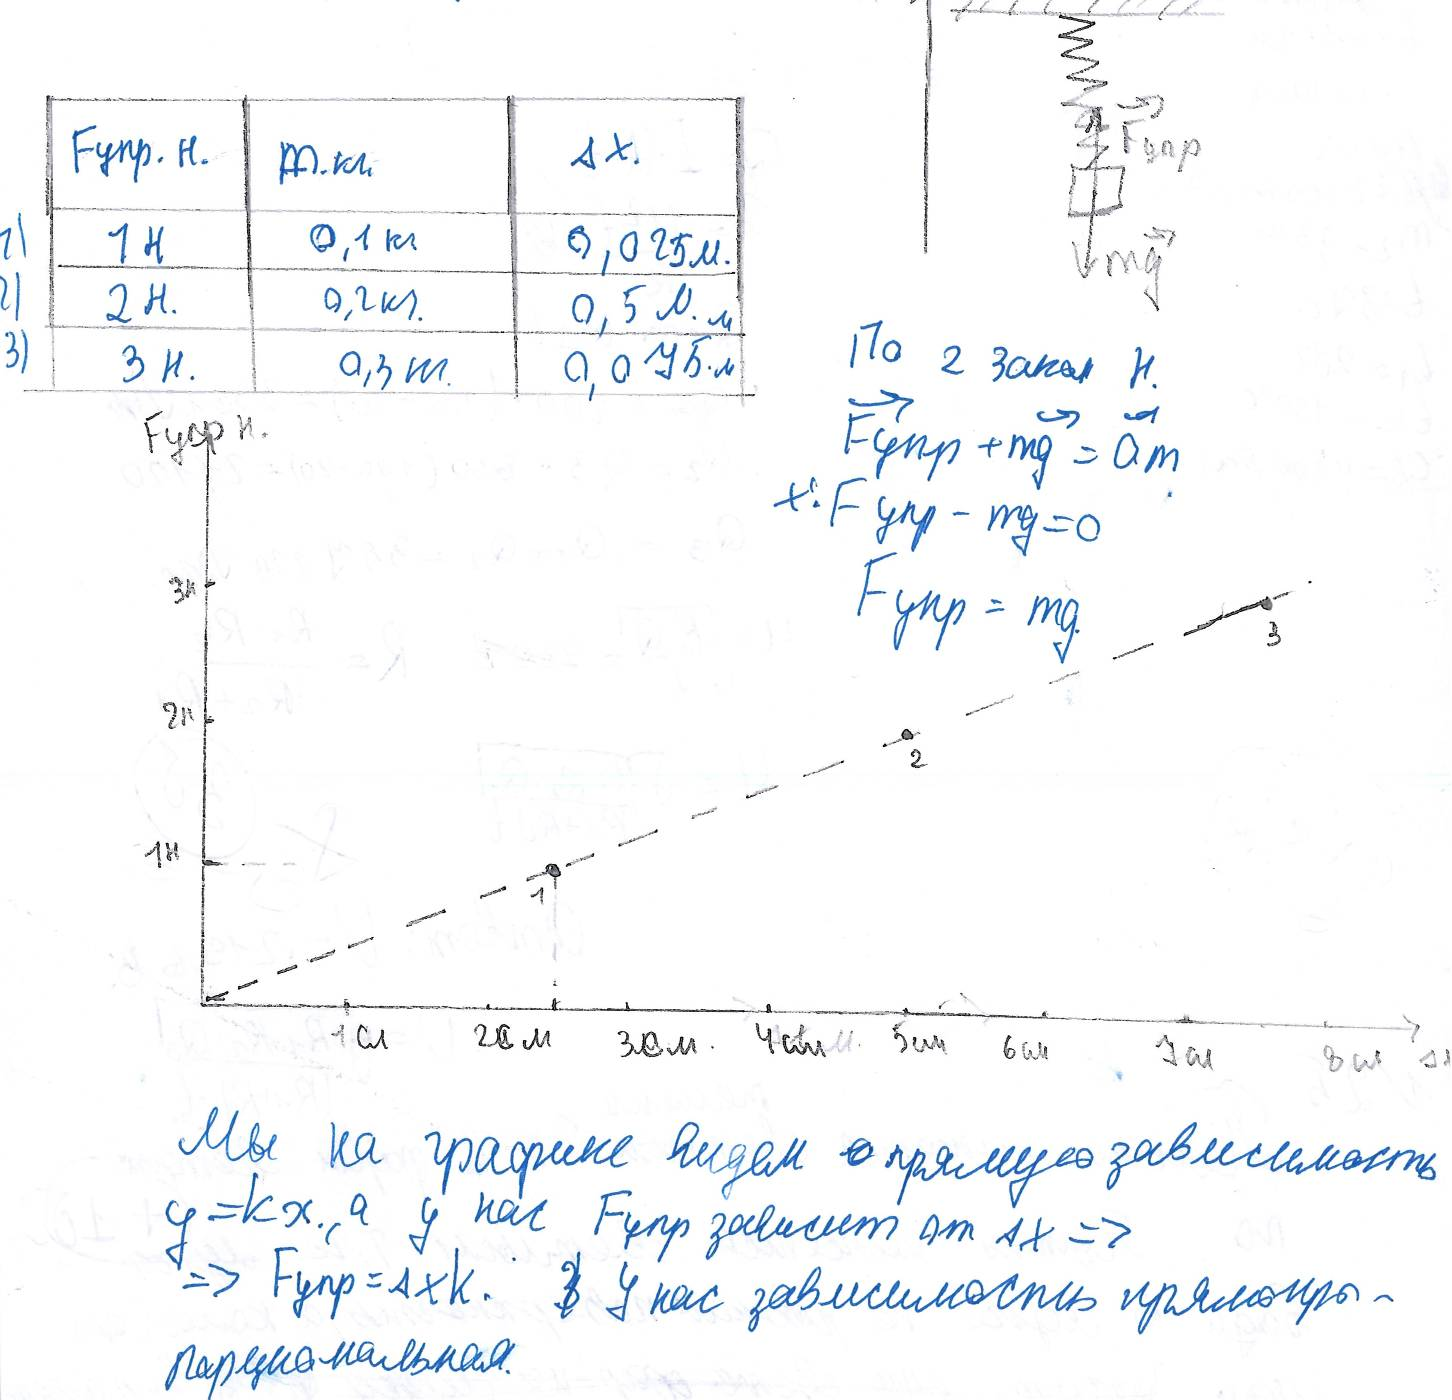 Fупр. Н. m.кг Δx.
1) 1 Н 0,1 кг 0,025 м.
2) 2 Н. 0,2 кг. 0,5 м. м
3) 3 Н. 0,3 кг. 0,075.м
Fупр
mg
По 2 закон Н.
Fупр + mg = am
x: Fупр - mg = 0
Fупр = mg.
Fупр Н.
3н
2н
1н
1
2
3
1см 2см 3см. 4см 5см 6см 7см 8см
Мы на графике видем прямую зависимость
y = kx., а у нас Fупр зависит от Δx =>
=> Fупр = Δxk. У нас зависимость прямопро-
парциональная.